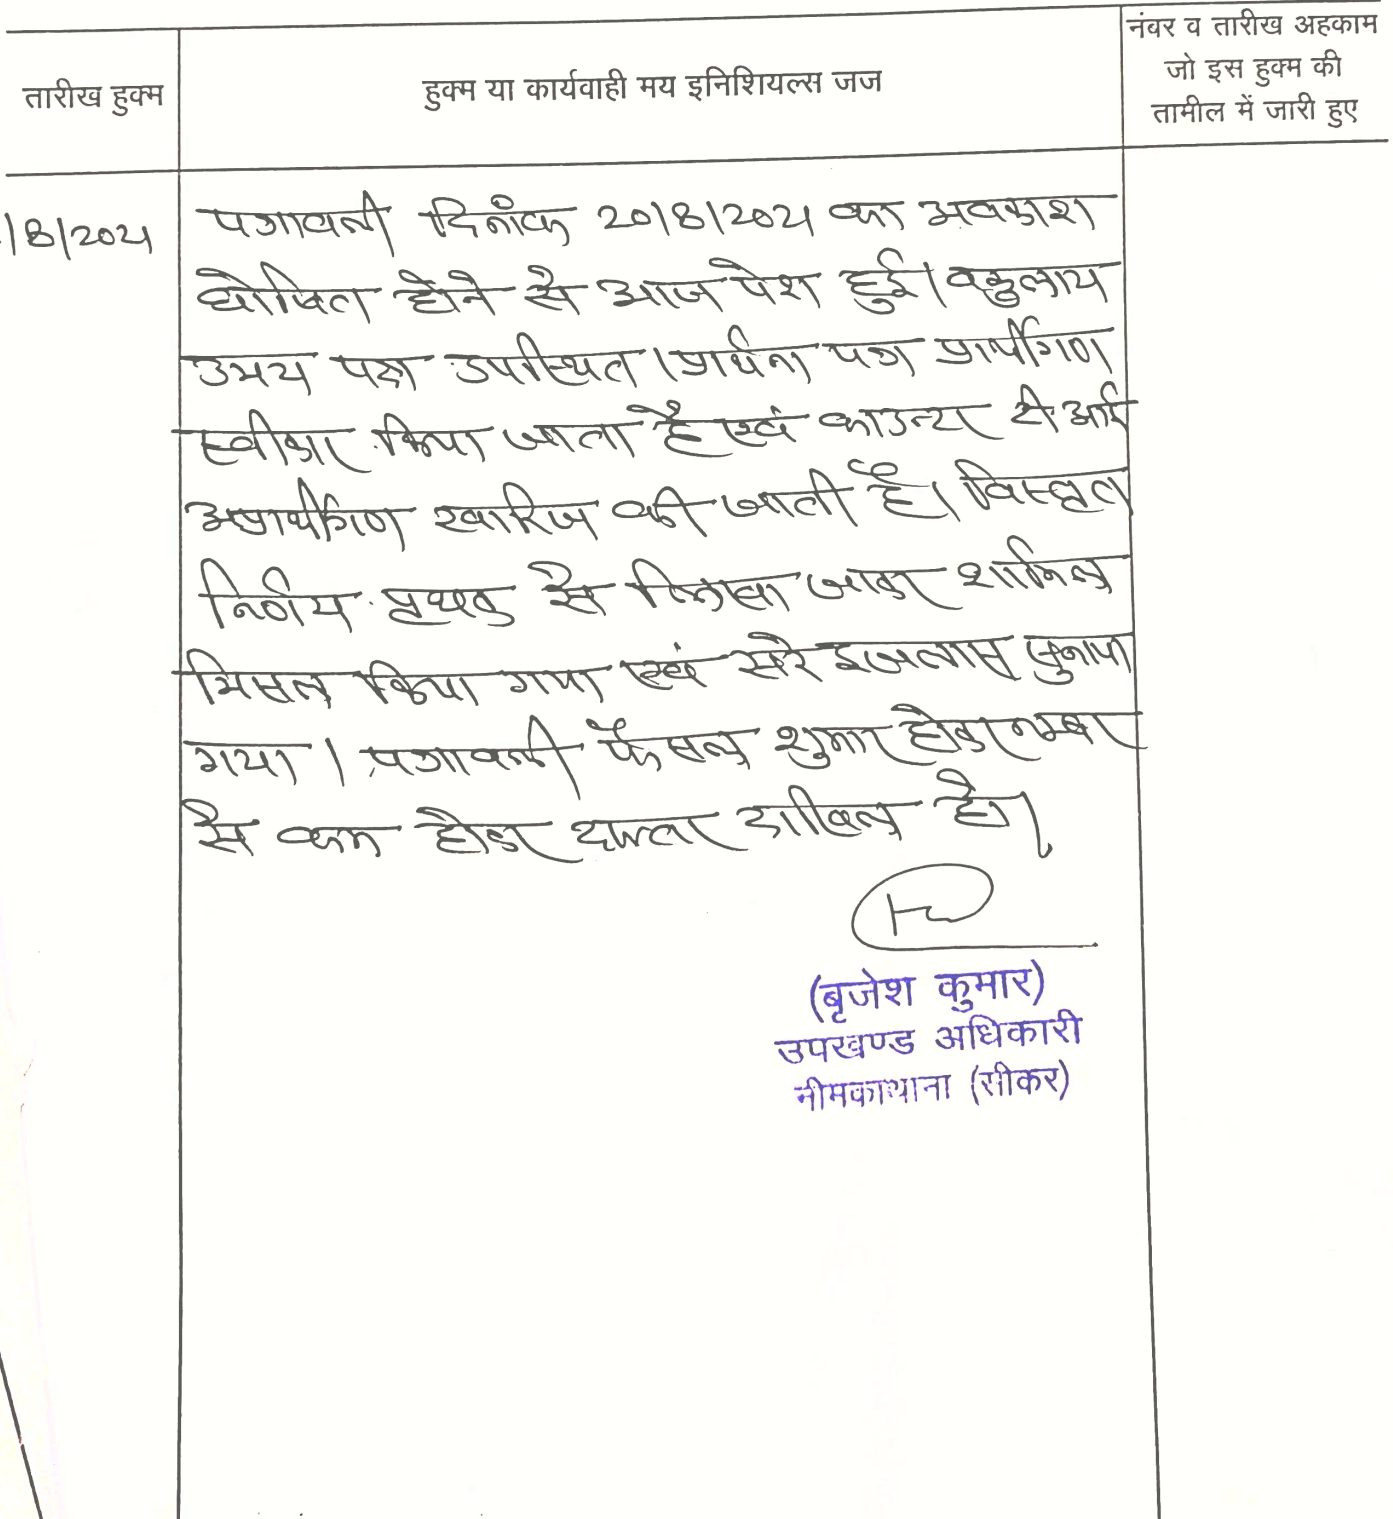 तारीख हुक्म
हुक्म या कार्यवाही मय इनिशियल्स जज
नंबर व तारीख अहकाम
जो इस हुक्म की
तामील में जारी हुए
/8/2021
पत्रावली दिनांक 20/8/2021 का अवकाश
घोषित होने से आज पेश हुई। वकुलाय
उभय पक्ष उपस्थित। प्रार्थना पत्र प्रार्थीगण
स्वीकार किया जाता है एवं काउन्टर टी आई
अप्रार्थीगण खारिज की जाती है। विस्तृत
निर्णय पृथक से लिखा जाकर शामिल
मिसल किया गया एवं सरे इजलास सुनाया
गया। पत्रावली फैसल शुमार होकर नम्बर
से कम होकर दफ्तर दाखिल हो।
(बृजेश कुमार)
उपखण्ड अधिकारी
नीमकाथाना (सीकर)